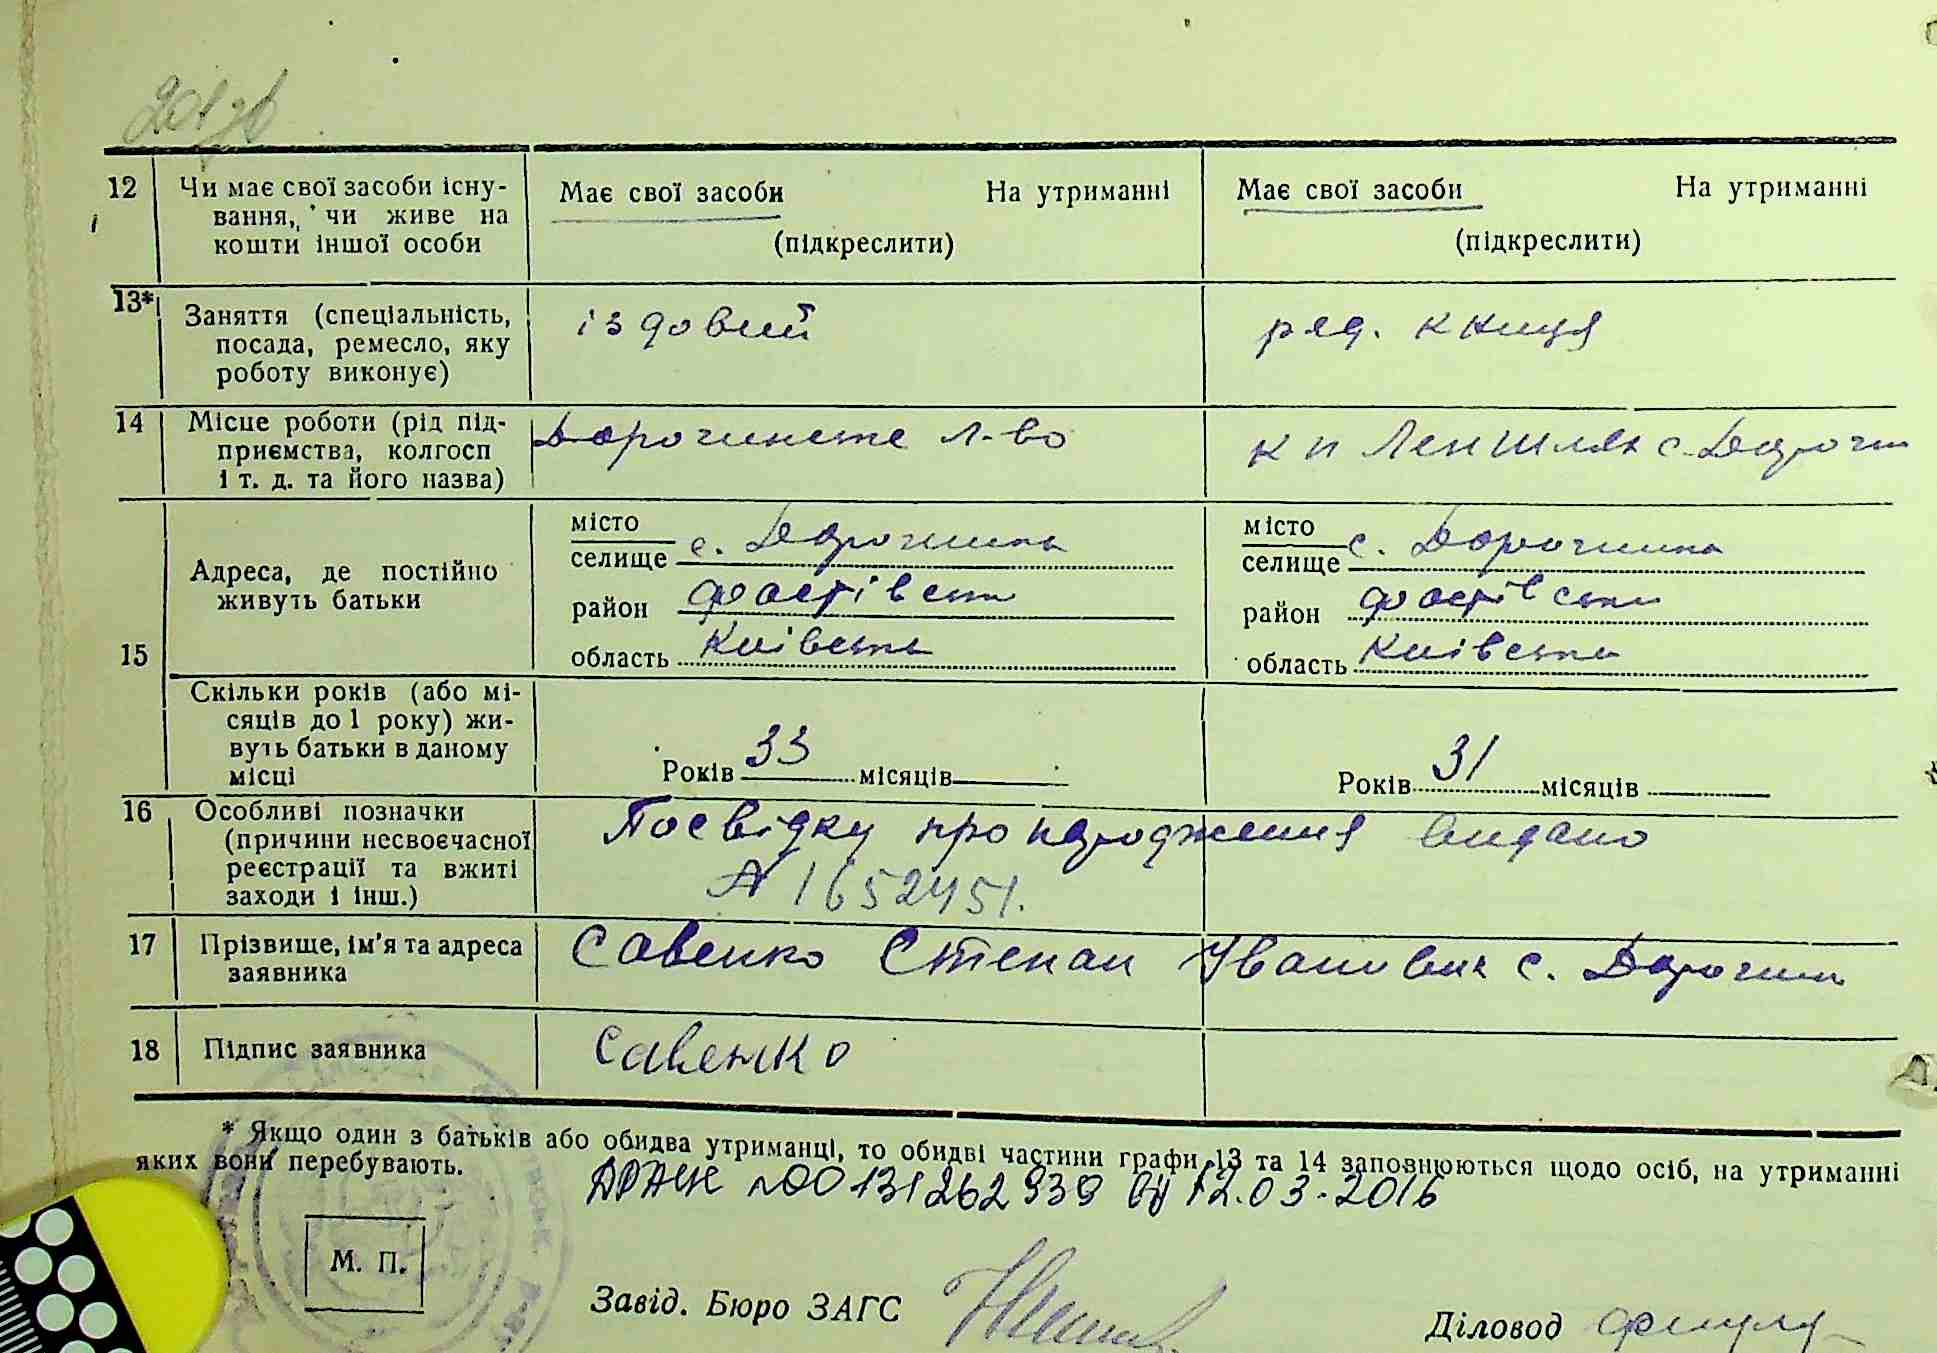 12 Чи має свої засоби існу- Має свої засоби На утриманні Має свої засоби На утриманні
вання, чи живе на
кошти іншої особи (підкреслити) (підкреслити)
13* Заняття (спеціальність, їздовий ряд. к-ниця
посада, ремесло, яку
роботу виконує)
14 Місце роботи (рід під- Дорогинське л-во к п Лен Шлях с. Дороги
приємства, колгосп
і т. д. та його назва)
15 Адреса, де постійно
живуть батьки
місто місто
селище с. Дорогинка селище с. Дорогинка
район Фастівськ район Фастівськ
область Київськ область Київськ
Скільки років (або мі-
сяців до 1 року) жи-
вуть батьки в даному
місці Років 33 місяців Років 31 місяців
16 Особливі позначки Посвідку про народження видано
(причини несвоєчасної
реєстрації та вжиті № 1652451.
заходи і інш.)
17 Прізвище, ім'я та адреса Савенко Степан Іванович с. Дорогин
заявника
18 Підпис заявника Савенко
* Якщо один з батьків або обидва утриманці, то обидві частини графи 13 та 14 заповнюються щодо осіб, на утриманні
яких вони перебувають.
ДРАЦС №00131262939 від 12.03.2016
М. П.
Завід. Бюро ЗАГС
Діловод